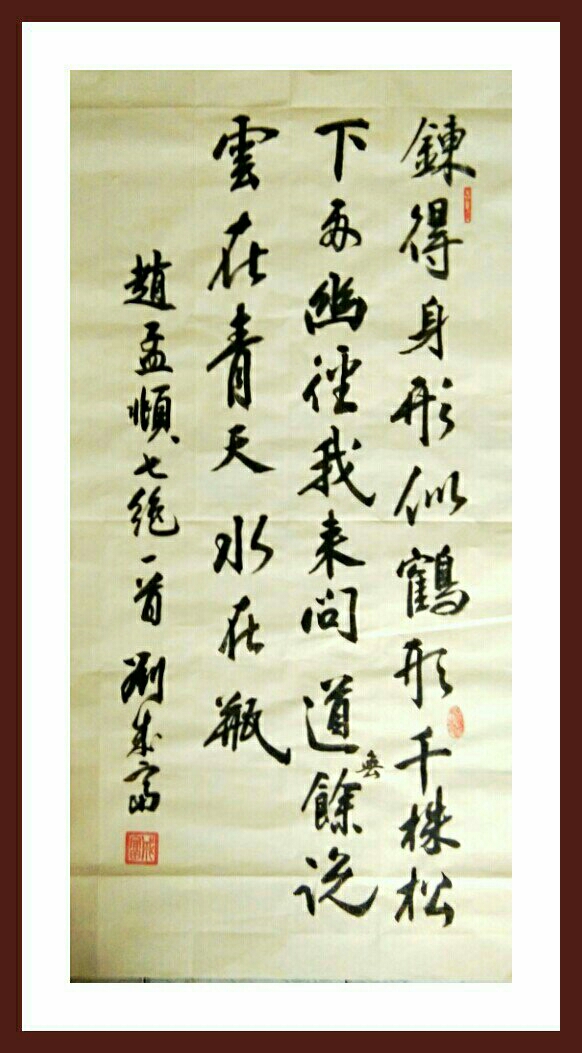 鍊得身形似鶴形千株松
下两幽徑我来問道無餘説
雲在青天水在瓶
趙孟頫七絕一首 劉成富